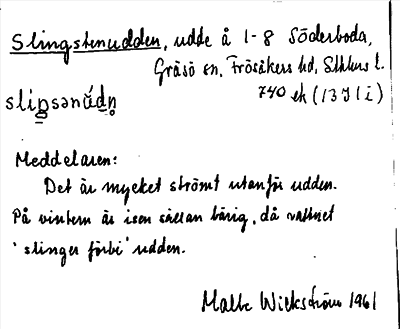 Slingstenudden, udde å 1-8 Söderboda,
Gräsö sn, Frösåkers hd, Sthlms l.
740 ek (13 J 1 i)
slíŋsənú̄dn̥
Meddelaren:
Det är mycket strömt utanför udden.
På vintern är isen sällan bärig, då vattnet
'slinger förbi' udden.
Malte Wickström 1961